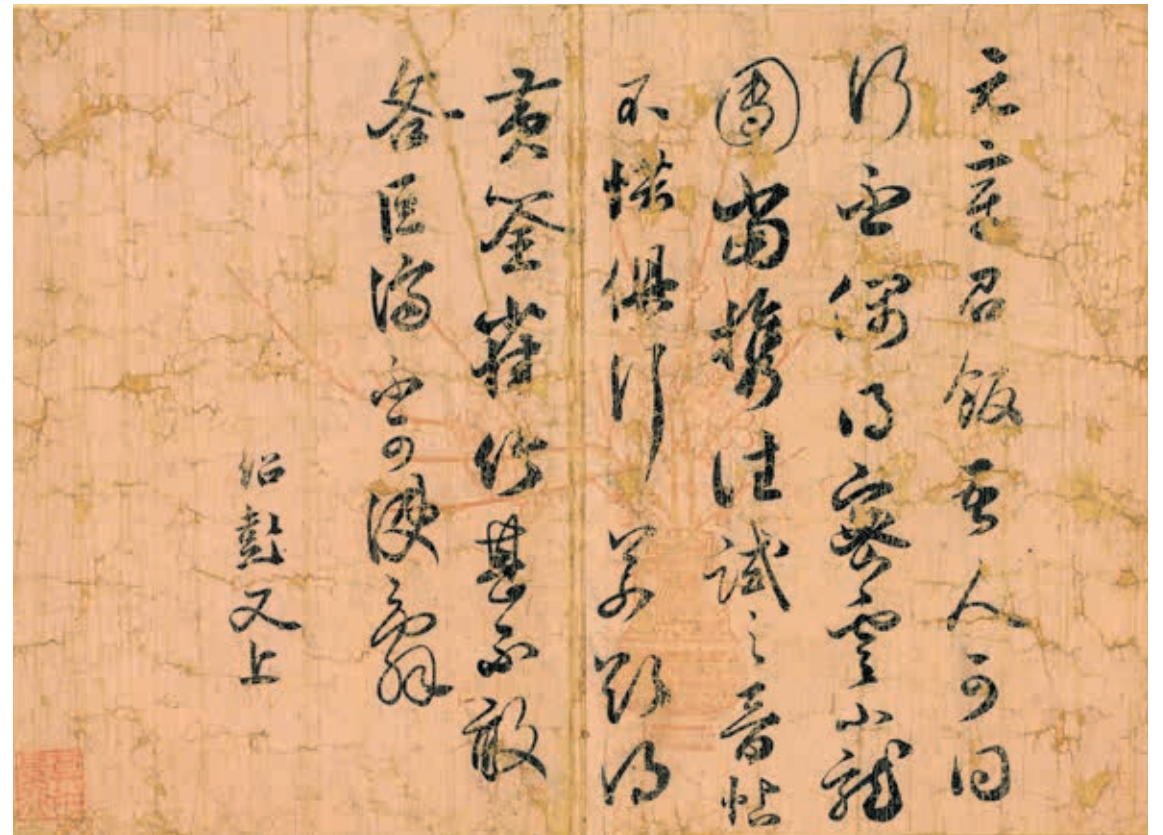 元章召飯吾人可同
行否偶得密雲小龍
團當攜往試之晉帖
不惜俱行得
黃筌雀竹甚不敢
吝巨濟可
紹彭又上